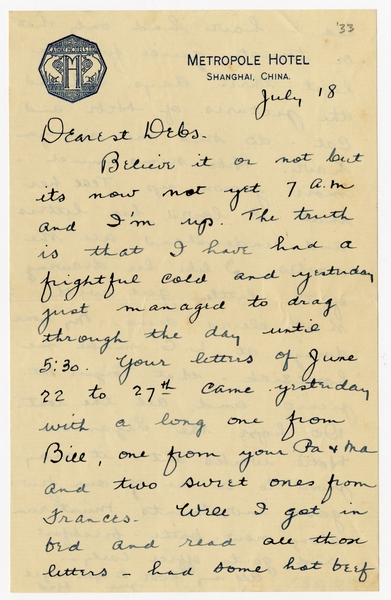 '33
METROPOLE HOTEL
SHANGHAI, CHINA.
July 18
Dearest Debs.
Believe it or not but
its now not yet 7 a.m
and I'm up. The truth
is that I have had a
frightful cold and yesterday
just managed to drag
through the day until
5:30. Your letters of June
22 to 27th came yesterday
with a long one from
Bill, one from your Pa & Ma
and two sweet ones from
Frances. Well I got in
bed and read all those
letters – had some hot beef